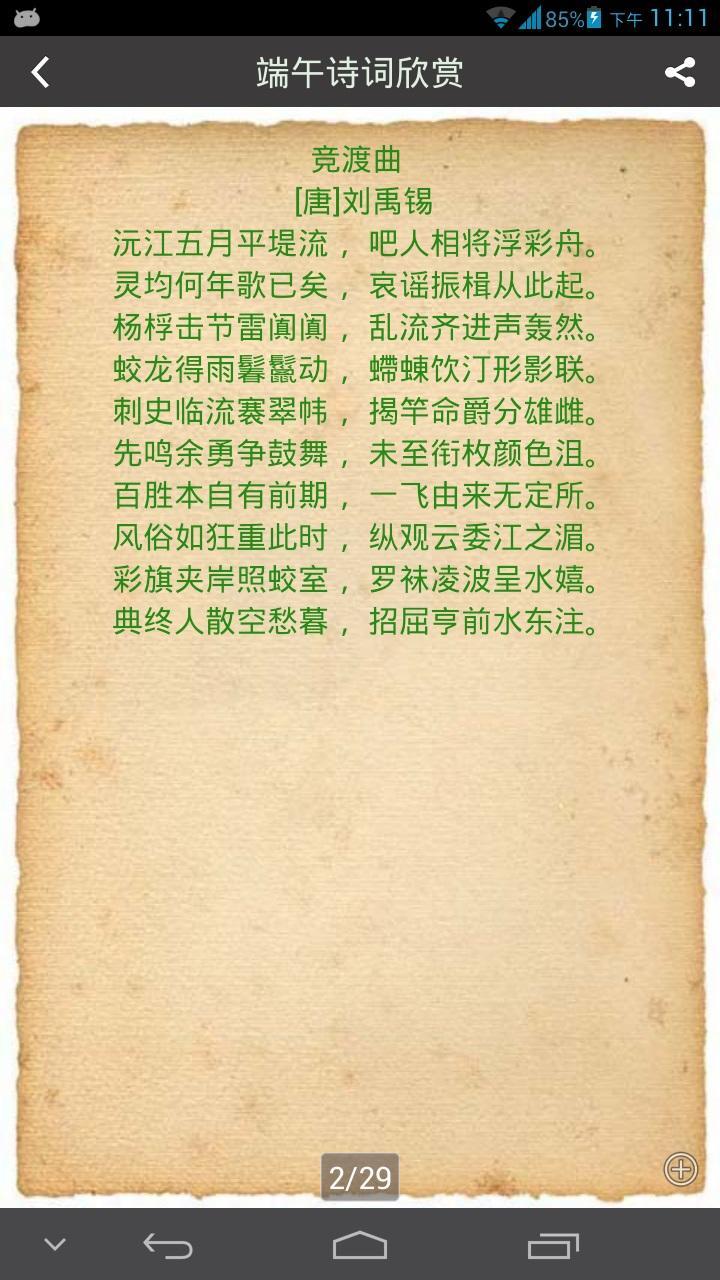 85% 下午 11:11
端午诗词欣赏
竞渡曲
[唐]刘禹锡
沅江五月平堤流，吧人相将浮彩舟。
灵均何年歌已矣，哀谣振楫从此起。
杨桴击节雷阗阗，乱流齐进声轰然。
蛟龙得雨鬐鬣动，螮蝀饮汀形影联。
刺史临流褰翠帏，揭竿命爵分雄雌。
先鸣余勇争鼓舞，未至衔枚颜色沮。
百胜本自有前期，一飞由来无定所。
风俗如狂重此时，纵观云委江之湄。
彩旗夹岸照蛟室，罗袜凌波呈水嬉。
典终人散空愁暮，招屈亨前水东注。
2/29